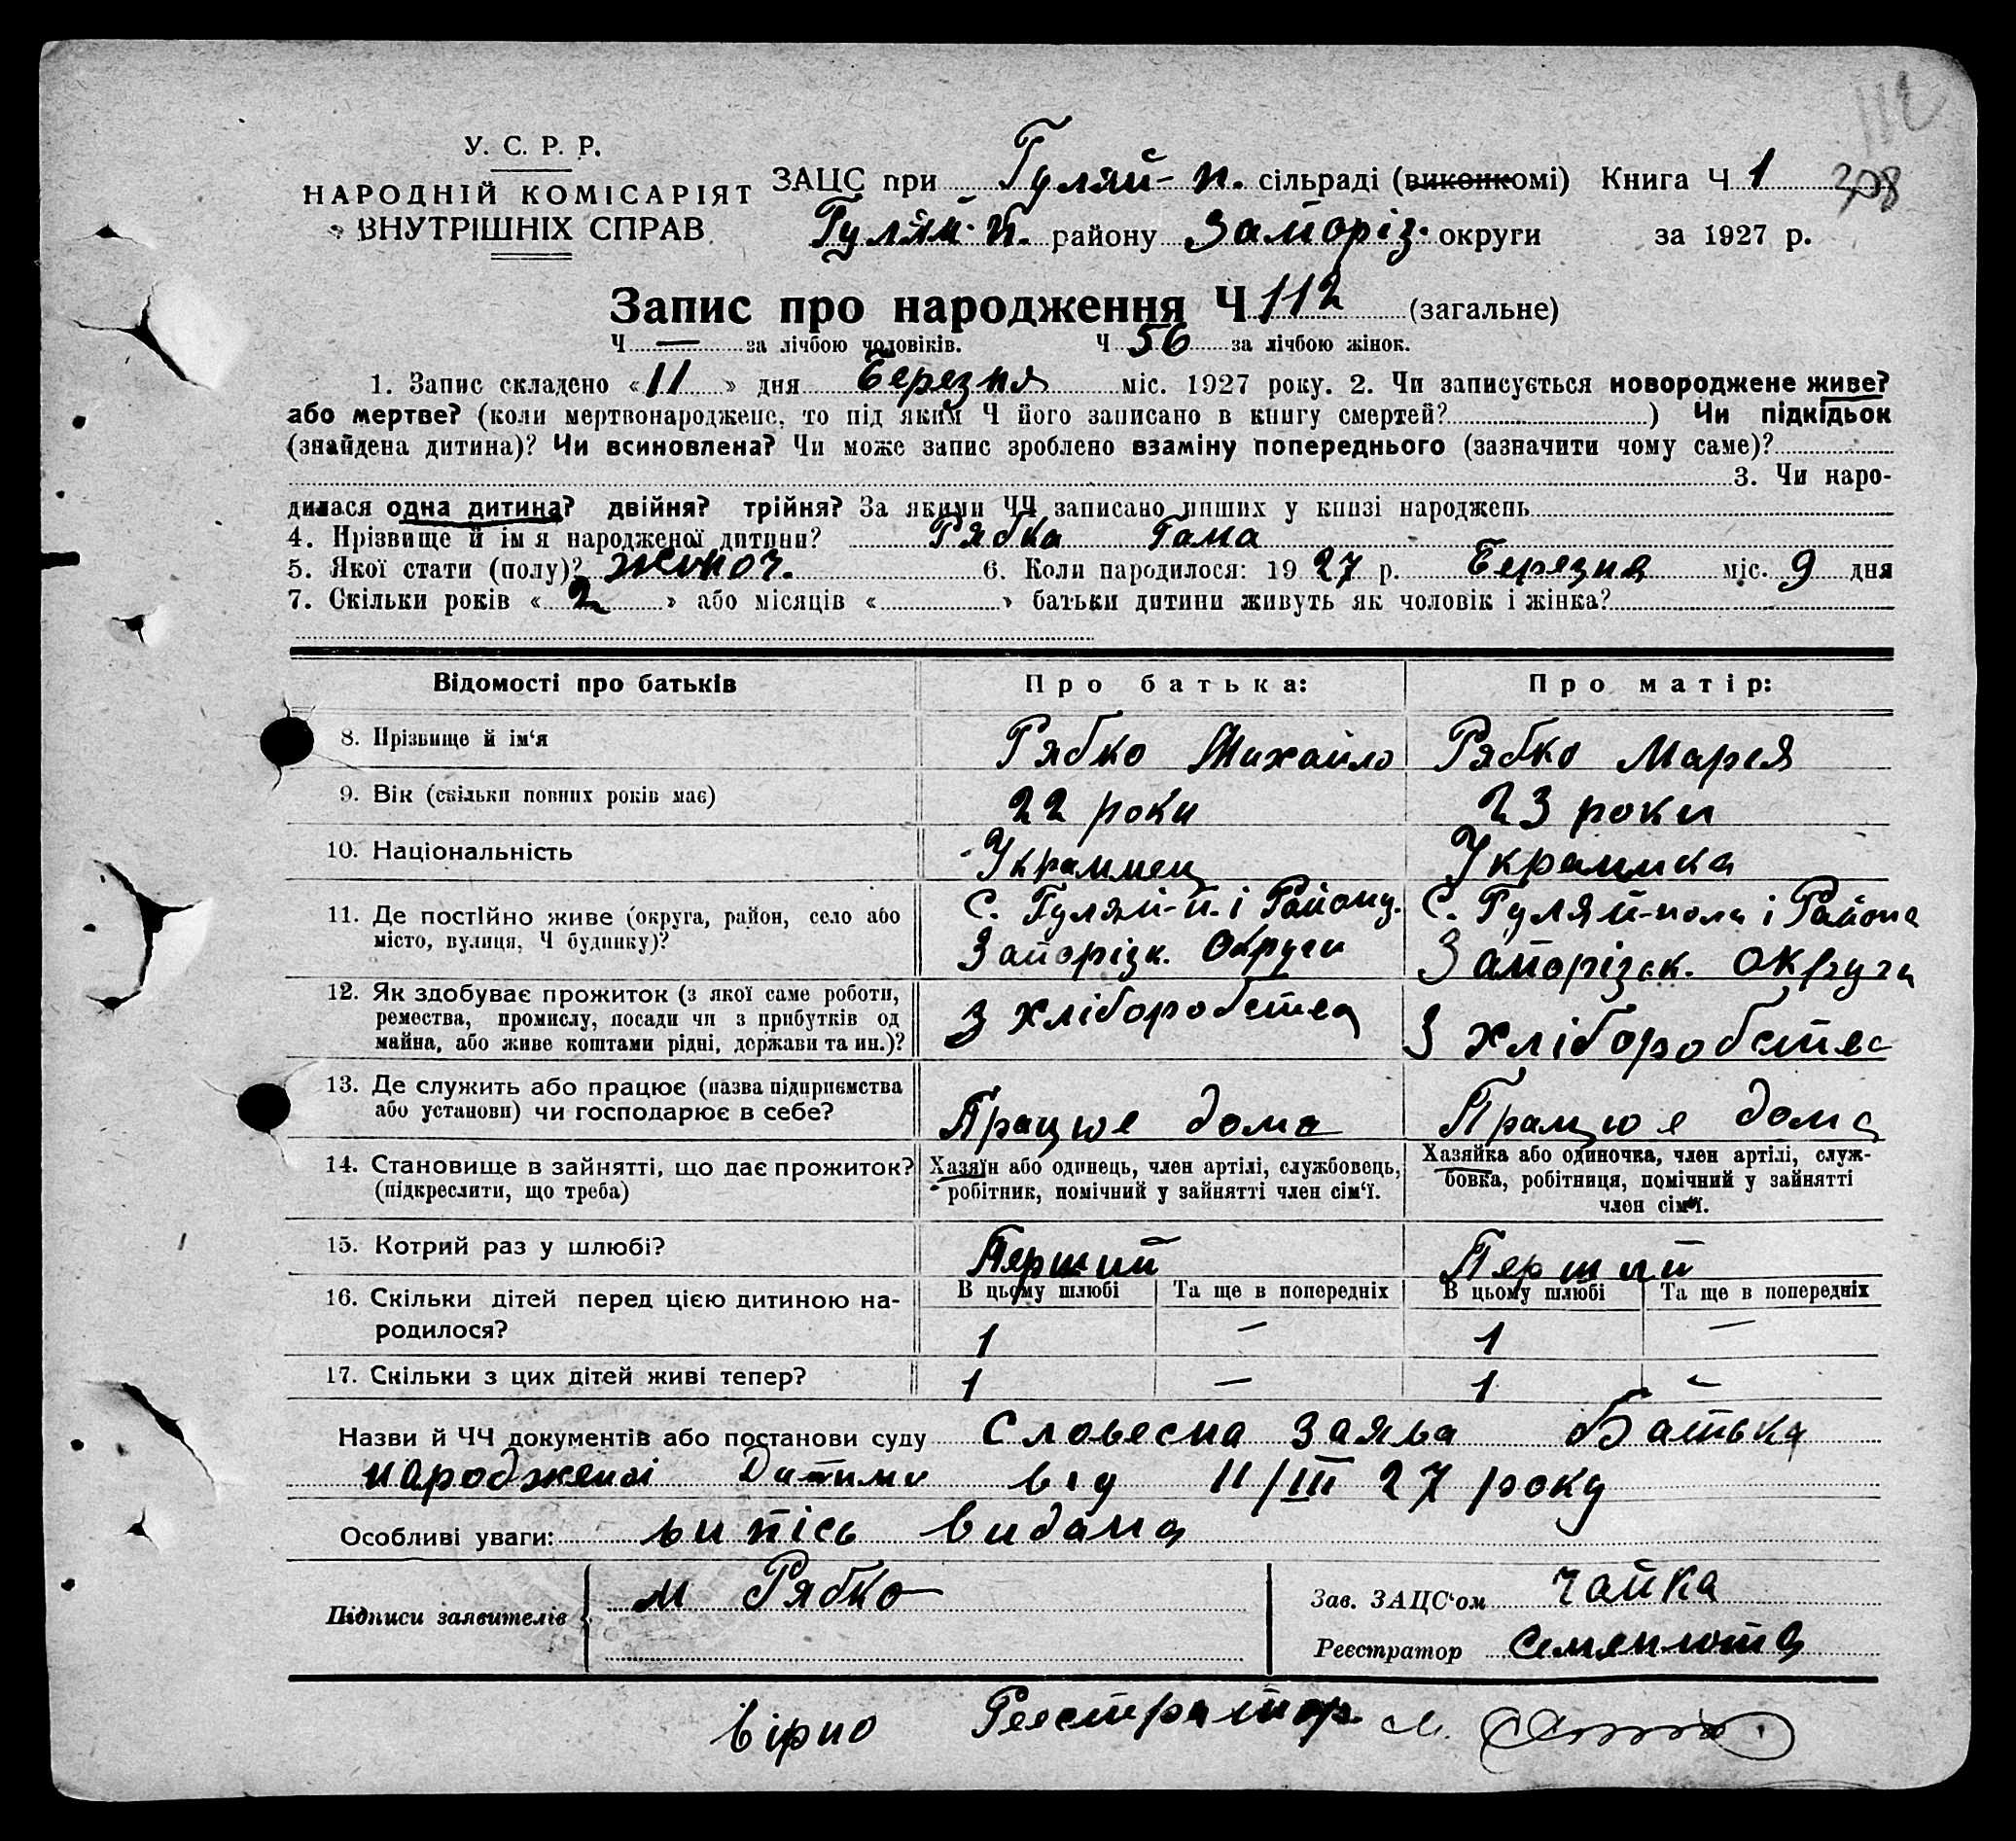 112
У. С. Р. Р.
НАРОДНІЙ КОМІСАРІЯТ
ВНУТРІШНІХ СПРАВ
ЗАЦС при Гуляй-п. сільраді (виконкомі) Книга Ч 1 308
Гуляй-п. району Запоріз. округи за 1927 р.
Запис про народження Ч 112 (загальне)
Ч — за лічбою чоловіків. Ч 56 за лічбою жінок.
1. Запис складено «11» дня березня міс. 1927 року. 2. Чи записується новороджене живе?
або мертве? (коли мертвонароджене, то під яким Ч його записано в книгу смертей? ) Чи підкідьок
(знайдена дитина)? Чи всиновлена? Чи може запис зроблено взаміну попереднього (зазначити чому саме)?
3. Чи наро-
дилася одна дитина? двійня? трійня? За якими ЧЧ записано инших у книзі народжень
4. Прізвище й ім'я народженої дитини? Рябка Гама
5. Якої стати (полу)? жоноч. 6. Коли народилося: 1927 р. Березня міс. 9 дня
7. Скільки років «2» або місяців « » батьки дитини живуть як чоловік і жінка?
Відомості про батьків Про батька: Про матір:
8. Прізвище й ім'я Рябко Михайло Рябко Марія
9. Вік (скільки повних років має) 22 роки 23 роки
10. Національність Украинец Украинка
11. Де постійно живе (округа, район, село або С. Гуляй-п. і Району. С. Гуляй-поля і Района
місто, вулиця, Ч будинку)? Запорізк. Округи Запорізск. округи
12. Як здобуває прожиток (з якої саме роботи,
ремества, промислу, посади чи з прибутків од З хліборобства З хліборобства
майна, або живе коштами рідні, держави та ин.)?
13. Де служить або працює (назва підприємства
або установи) чи господарює в себе? Працює дома Працює дома
14. Становище в зайнятті, що дає прожиток? Хазяїн або одинець, член артілі, службовець, Хазяйка або одиночка, член артілі, служ-
(підкреслити, що треба) робітник, помічний у зайнятті член сім'ї. бовка, робітниця, помічний у зайнятті
член сім'ї.
15. Котрий раз у шлюбі? Перший Перший
16. Скільки дітей перед цією дитиною на- В цьому шлюбі Та ще в попередніх В цьому шлюбі Та ще в попередніх
родилося? 1 — 1 —
17. Скільки з цих дітей живі тепер? 1 — 1 —
Назви й ЧЧ документів або постанови суду Словесна заява Батька
народженої Дитини від 11/III 27 року
Особливі уваги: випісь видана
Підписи заявителів М Рябко Зав. ЗАЦС'ом Чайка
Реєстратор Семянюта
Вірно Реєстратор М.